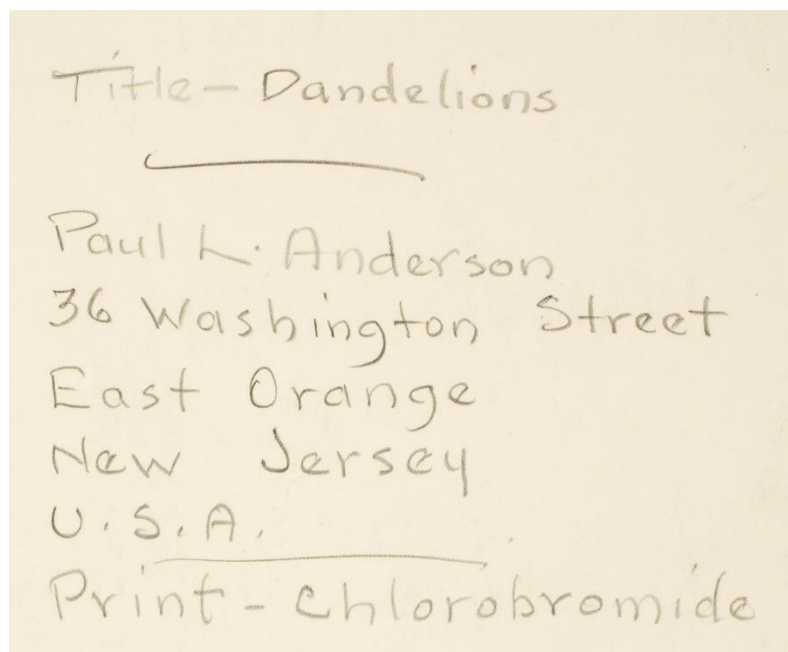 Title - Dandelions
Paul L. Anderson
36 Washington Street
East Orange
New Jersey
U.S.A.
Print - Chlorobromide